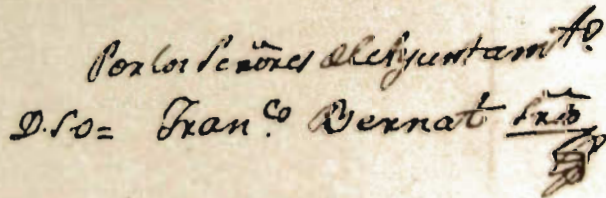 Por los Señores del Ayuntam.to
D.S.O= Fran.co Bernat Srio